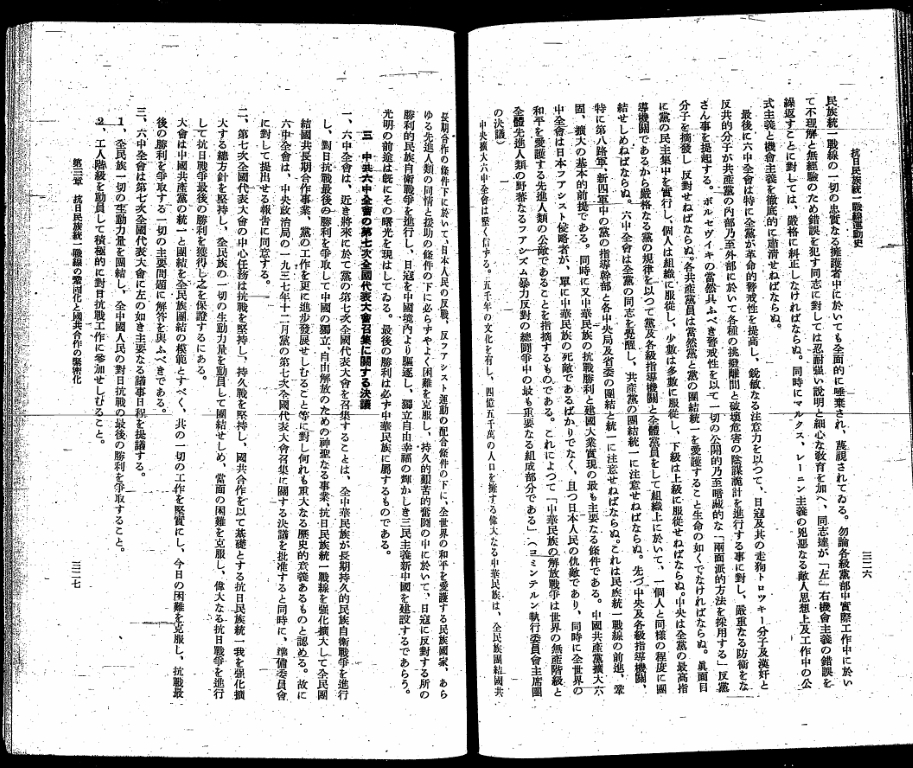 抗日民族統一戰線運動史
三二六
民族統一戰線の一切の忠實なる擁護者中に於いても全面的に唾棄され、蔑視されてゐる。勿論各級黨部中實際工作中に於い
て不理解と無經驗のため錯誤を犯す同志に對しては忍耐强い說明と細心な敎育を加へ、同志達が「左」右機會主義の錯誤を
繰返すことに對しては、嚴格に糾正しなければならぬ。同時にマルクス、レーニン主義の兇惡なる敵人思想上及工作中の公
式主義と機會主義を徹底的に肅淸せねばならぬ。
最後に六中全會は特に全黨が革命的警戒性を提高し、銳敏なる注意力を以つて、日寇及其の走狗トロツキー分子及漢奸と
反共的分子が共產黨の內部乃至外部に於いて各種の挑撥離間と破壞危害の陰謀詭計を進行する事に對し、嚴重なる防衞をな
さん事を提起する。ボルセヴイキの當然具ふべき警戒性を以て一切の公開的乃至暗藏的な「兩面派的方法を採用する」反黨
分子を摘發し、反對せねばならぬ。各共產黨員は當然黨と黨の團結統一を愛護すること生命の如くでなければならぬ。眞面目
に黨の民主集中を實行し、個人は組織に服從し、少數は多數に服從し、下級は上級に服從せねばならぬ。中央は全黨の最高指
導機關であるから嚴格なる黨の規律を以つて黨及各級指導機關と全體黨員をして組織上に於いて、一個人と同樣の程度に團
結せしめねばならぬ。六中全會は全黨の同志を覺醒し、共產黨の團結統一に注意せねばならぬ。先づ中央及各級指導機關、
特に第八路軍、新四軍中の黨の指導幹部と各中央局及省委の團結と統一に注意せねばならぬ。これは民族統一戰線の前進、鞏
固、擴大の基本的前提である。同時に又中華民族の抗戰勝利と建國大業實現の最も主要なる條件である。中國共產黨擴大六
中全會は日本フアシスト侵略者が、單に中華民族の死敵であるばかりでなく、且つ日本人民の仇敵であり、同時に全世界の
和平を愛護する先進人類の公敵であることを指摘するものである。これによつて「中華民族の解放戰爭は世界の無產階級と
全體先進人類の野蕃なるフアシズム暴力反對の總鬪爭中の最も重要なる組成部分である」（コミンテルン執行委員會主席團
の決議）
中央擴大六中全會は堅く信ずる。五千年の文化を有し、四億五千萬の人口を擁する偉大なる中華民族は、全民族團結國共
長期合作の條件下に於いて、日本人民の反戰、反フアシスト運動の配合條件の下に、全世界の和平を愛護する民族國家、あら
ゆる先進人類の同情と援助の條件の下に必らずやよく困難を克服し、持久的艱苦的奮鬪の中に於いて、日寇に反對する所の
勝利的民族自衞戰爭を進行し、日寇を中國境內より驅逐し、獨立自由幸福の輝かしき三民主義新中國を建設するであらう。
光明の前途は旣にその曙光を現はしてゐる。最後の勝利は必ず中華民族に屬するものである。
三　中共六中全會の第七次全國代表大會召集に關する決議
一、六中全會は、近き將來に於て黨の第七次全國代表大會を召集することは、全中華民族が長期持久的民族自衞戰爭を進行
し、對日抗戰最後の勝利を爭取して中國の獨立、自由解放のための神聖なる事業、抗日民族統一戰線を强化擴大して全民團
結國共長期合作事業、黨の工作を更に進步發展せしむること等に對し何れも重大なる歷史的意義あるものと認める。故に
六中全會は、中央政治局の一九三七年十二月黨の第七次全國代表大會召集に關する決議を批准すると同時に、準備委員會
に對して提出せる報告に同意する。
二、第七次全國代表大會の中心任務は抗戰を堅持し、持久戰を堅持し、國共合作を以て基礎とする抗日民族統一我を强化擴
大する總方針を堅持し、全民族の一切の生動力量を動員して團結せしめ、當面の困難を克服し、偉大なる抗日戰爭を進行
して抗日戰爭最後の勝利を獲得し之を保證するにある。
大會は中國共產黨の統一と團結を全民族團結の模範とすべく、共の一切の工作を堅實にし、今日の困難を克服し、抗戰最
後の勝利を爭取する一切の主要問題に解答を與ふべきである。
三、六中全會は第七次全國代表大會に左の如き主要なる諸事日程を提議する。
1、全民族一切の生動力量を團結し、全中國人民の對日抗戰の最後の勝利を爭取すること。
2、工人階級を動員して積極的に對日抗戰工作に參加せしむること。
第三章　抗日民族統一戰線の鞏固化と國共合作の緊密化
三二七